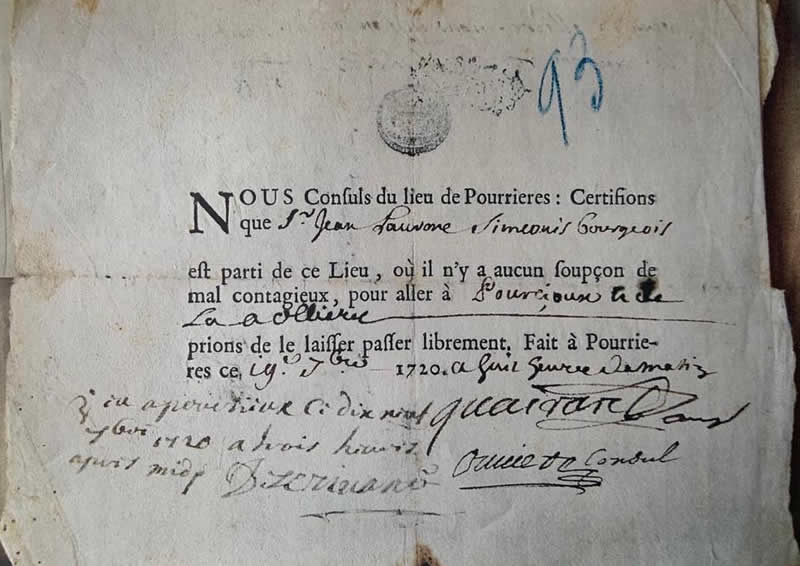 93
NOUS Consuls du lieu de Pourrieres : Certifions
que Sr. Jean Simeonis bourgeois
est parti de ce Lieu, où il n'y a aucun soupçon de
mal contagieux, pour aller à Pourcioux et de
La
prions de le laisser passer librement. Fait à Pourrie-
res ce, 19e 7bre 1720. a huit heures du matin
Veu a pourcieux ce dix neuf
7bre 1720 a trois heures
apres midy
Consul